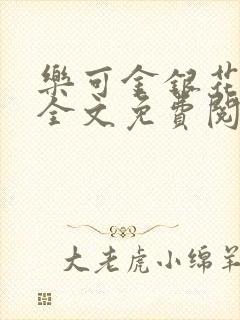 樂可金銀花
全文免費閱
大老虎小绵羊